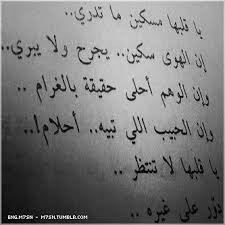 يا قلبها مسكين ما تدري..
إن الهوى سكين.. يجرح ولا يبري..
وإن الوهم أحلى حقيقة بالغرام ..
وإن الحبيب اللي تبيه.. أحلام!..
يا قلبها لا تنتظر ..
دوّر على غيره ..
ENG.M7SN - M7SN.TUMBLR.COM